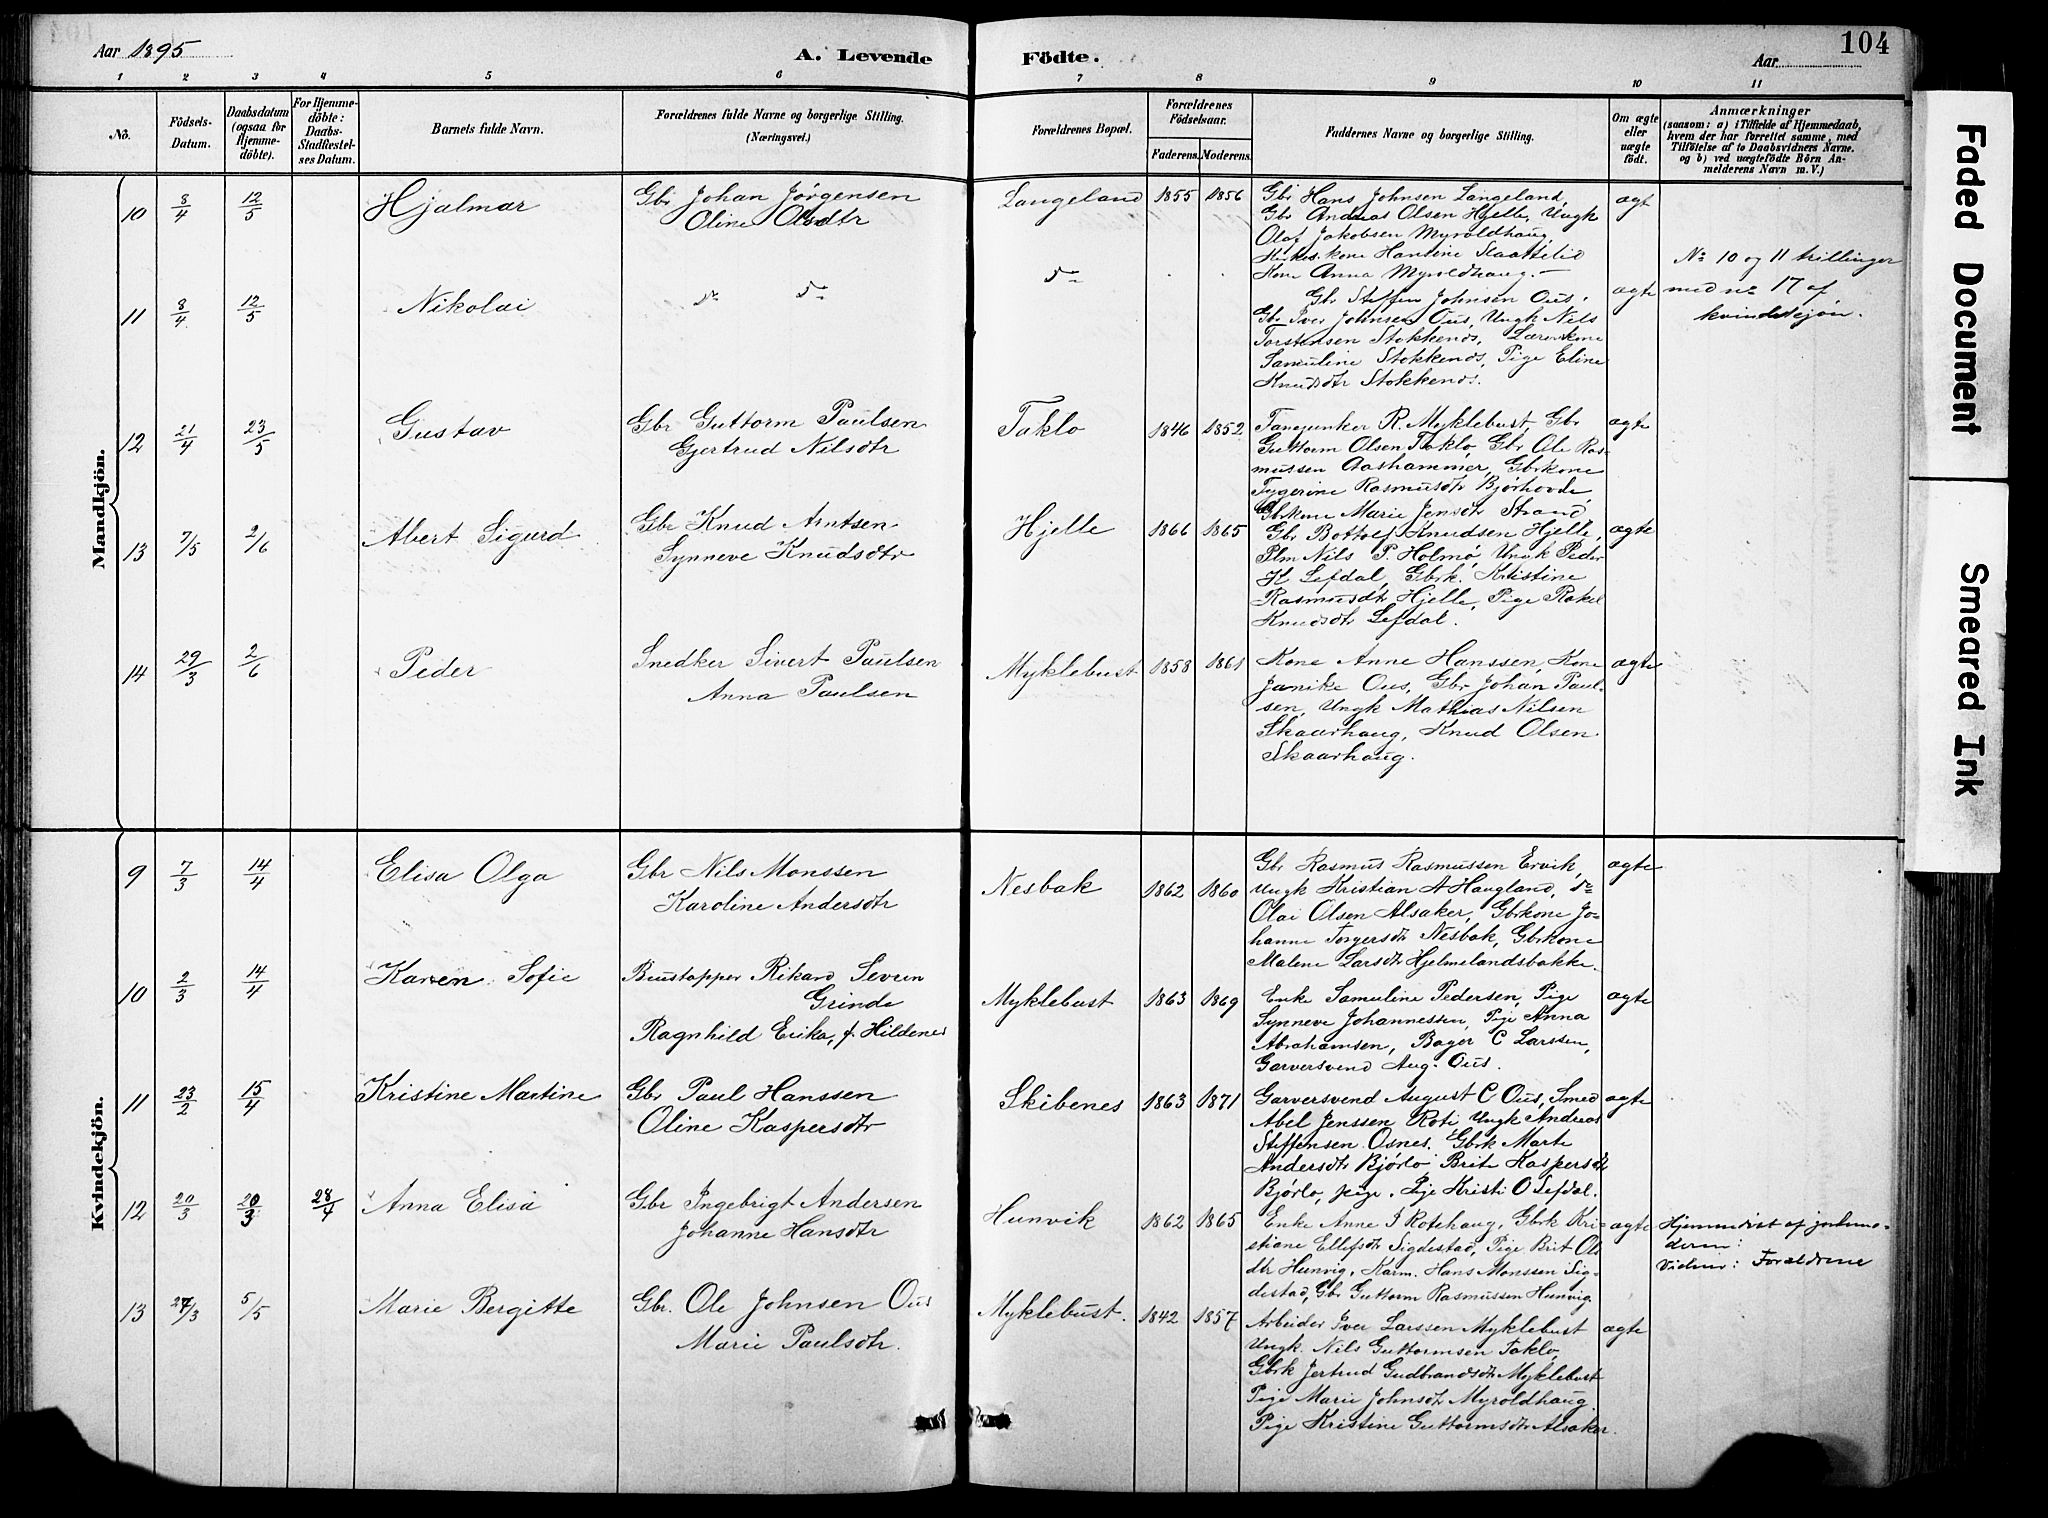 Aar 1895
A. Levende Födte.
Aar
104
1 2 3 4 5 6 7 8 9 10 11
No.
Födsels-Datum.
Daabsdatum (ogsaa for Hjemmedöbte).
For Hjemmedöbte: Daabs-Stadfæstelses Datum.
Barnets fulde Navn.
Forældrenes fulde Navne og borgerlige Stilling. (Næringsvei.)
Forældrenes Bopæl.
Forældrenes Födselsaar.
Faderens. Moderens.
Faddernes Navne og borgerlige Stilling.
Om ægte eller uægte födt.
Anmærkninger
(saasom: a) i Tilfælde af Hjemmedaab,
hvem der har forrettet samme, med
Tilföielse af to Daabsvidners Navne.
og b) ved uægtefödte Börn An-
melderens Navn m. V.)
Mandkjön.
10 8/4 12/5 Hjalmar Gbr Johan Jørgensen Langeland 1855 1856 Gbr Hans Johnsen Langeland, ægt
Oline Olsdtr Gbr Andreas Olsen Hjelle, Ungk
Olaf Jakobsen Myroldhaug
kone Hansine Slaattelid
Kone Anna Myroldhaug.
No 10 og 11 trillinger
med no 17 af
kvindekjøn.
11 8/4 12/5 Nikolai do do do Gbr Steffen Johnsen Ous, ægte
Gbr Iver Johnsen Ous, Ungk Nils
Torstensen Stokkenes, Lærerkone
Samuline Stokkenes, Pige Eline
Knudsdtr Stokkenes.
12 21/4 23/5 Gustav Gbr Guttorm Paulsen Taklo 1846 1852 Fanejunker R. Myklebust, Gbr ægte
Gjertrud Nilsdtr Guttorm Olsen Taklo, Gbr Ole Ras-
mussen Aashammer, Gbrkone
Tygerine Rasmusdtr Bjørhovde
Gbrkone Marie Jensdtr Strand
13 7/5 2/6 Albert Sigurd Gbr Knud Arntsen Hjelle 1866 1865 Gbr Bottolf Knudsen Hjelle, ægte
Synneve Knudsdtr Plm Nils P. Holmø, Ungk Peder
K Lefdal, Gbrk. Kristine
Rasmusdtr Hjelle, Pige Rakel
Knudsdtr Lefdal.
14 29/3 2/6 Peder Snedker Sivert Paulsen Myklebust 1858 1861 Kone Anne Hanssen, Kone ægte
Anna Paulsen Janike Ous, Gbr Johan Paul-
sen, Ungk Mathias Nilsen
Skaarhaug, Knud Olsen
Skaarhaug.
Kvindekjön.
9 7/3 14/4 Elisa Olga Gbr Nils Monssen Nesbak 1862 1860 Gbr Rasmus Rasmussen Ervik, ægte
Karoline Andersdtr Ungk Kristian A Haugland, do
Olai Olsen Alsaker, Gbrkone Jo-
hanne Torgersdtr Nesbak, Gbrkone
Malene Larsdtr Hjelmelandsbakke.
10 2/3 14/4 Karen Sofie Buntapper Rikard Severin Myklebust 1863 1869 Enke Samuline Pedersen, Pige ægte
Grinde Synneve Johannessen, Pige Anna
Ragnhild Erika, f. Hildenes Abrahamsen, Bager C Larssen,
Garversvend Aug. Ous.
11 23/2 15/4 Kristine Martine Gbr Paul Hanssen Skibenes 1863 1871 Garversvend August C Ous, Smed ægte
Oline Kaspersdtr Abel Jenssen Roti Ungk Andreas
Steffensen Osnes. Gbrk Marte
Andersdtr Bjørlo Brite Kaspersdtr
Bjørlo, pige. Pige Kristi O Lefdal.
12 20/3 20/3 28/4 Anna Elisa Gbr Ingebrigt Andersen Hunvik 1862 1865 Enke Anne J Rotehaug, Gbrk Kri- ægte
Johanne Hansdtr stiane Ellefsdtr Sigdestad, Pige Brit Ols
dtr Hunvig, Karm. Hans Monssen Sig-
destad, Gbr Guttorm Rasmussen Hunvig
Hjemmedøbt af jordmo-
deren:
Vidner: Forældrene
13 27/3 5/5 Marie Bergitte Gbr. Ole Johnsen Ous Myklebust. 1842 1857 Arbeider Iver Larssen Myklebust ægte
Marie Paulsdtr. Ungk. Nils Guttormsen Taklo,
Gbrk Jertrud Gudbrandsdtr Myklebust
Pige Marie Johnsdtr Myroldhaug.
Pige Kristine Guttormsdtr Alsaker.
Faded Document
Smeared Ink